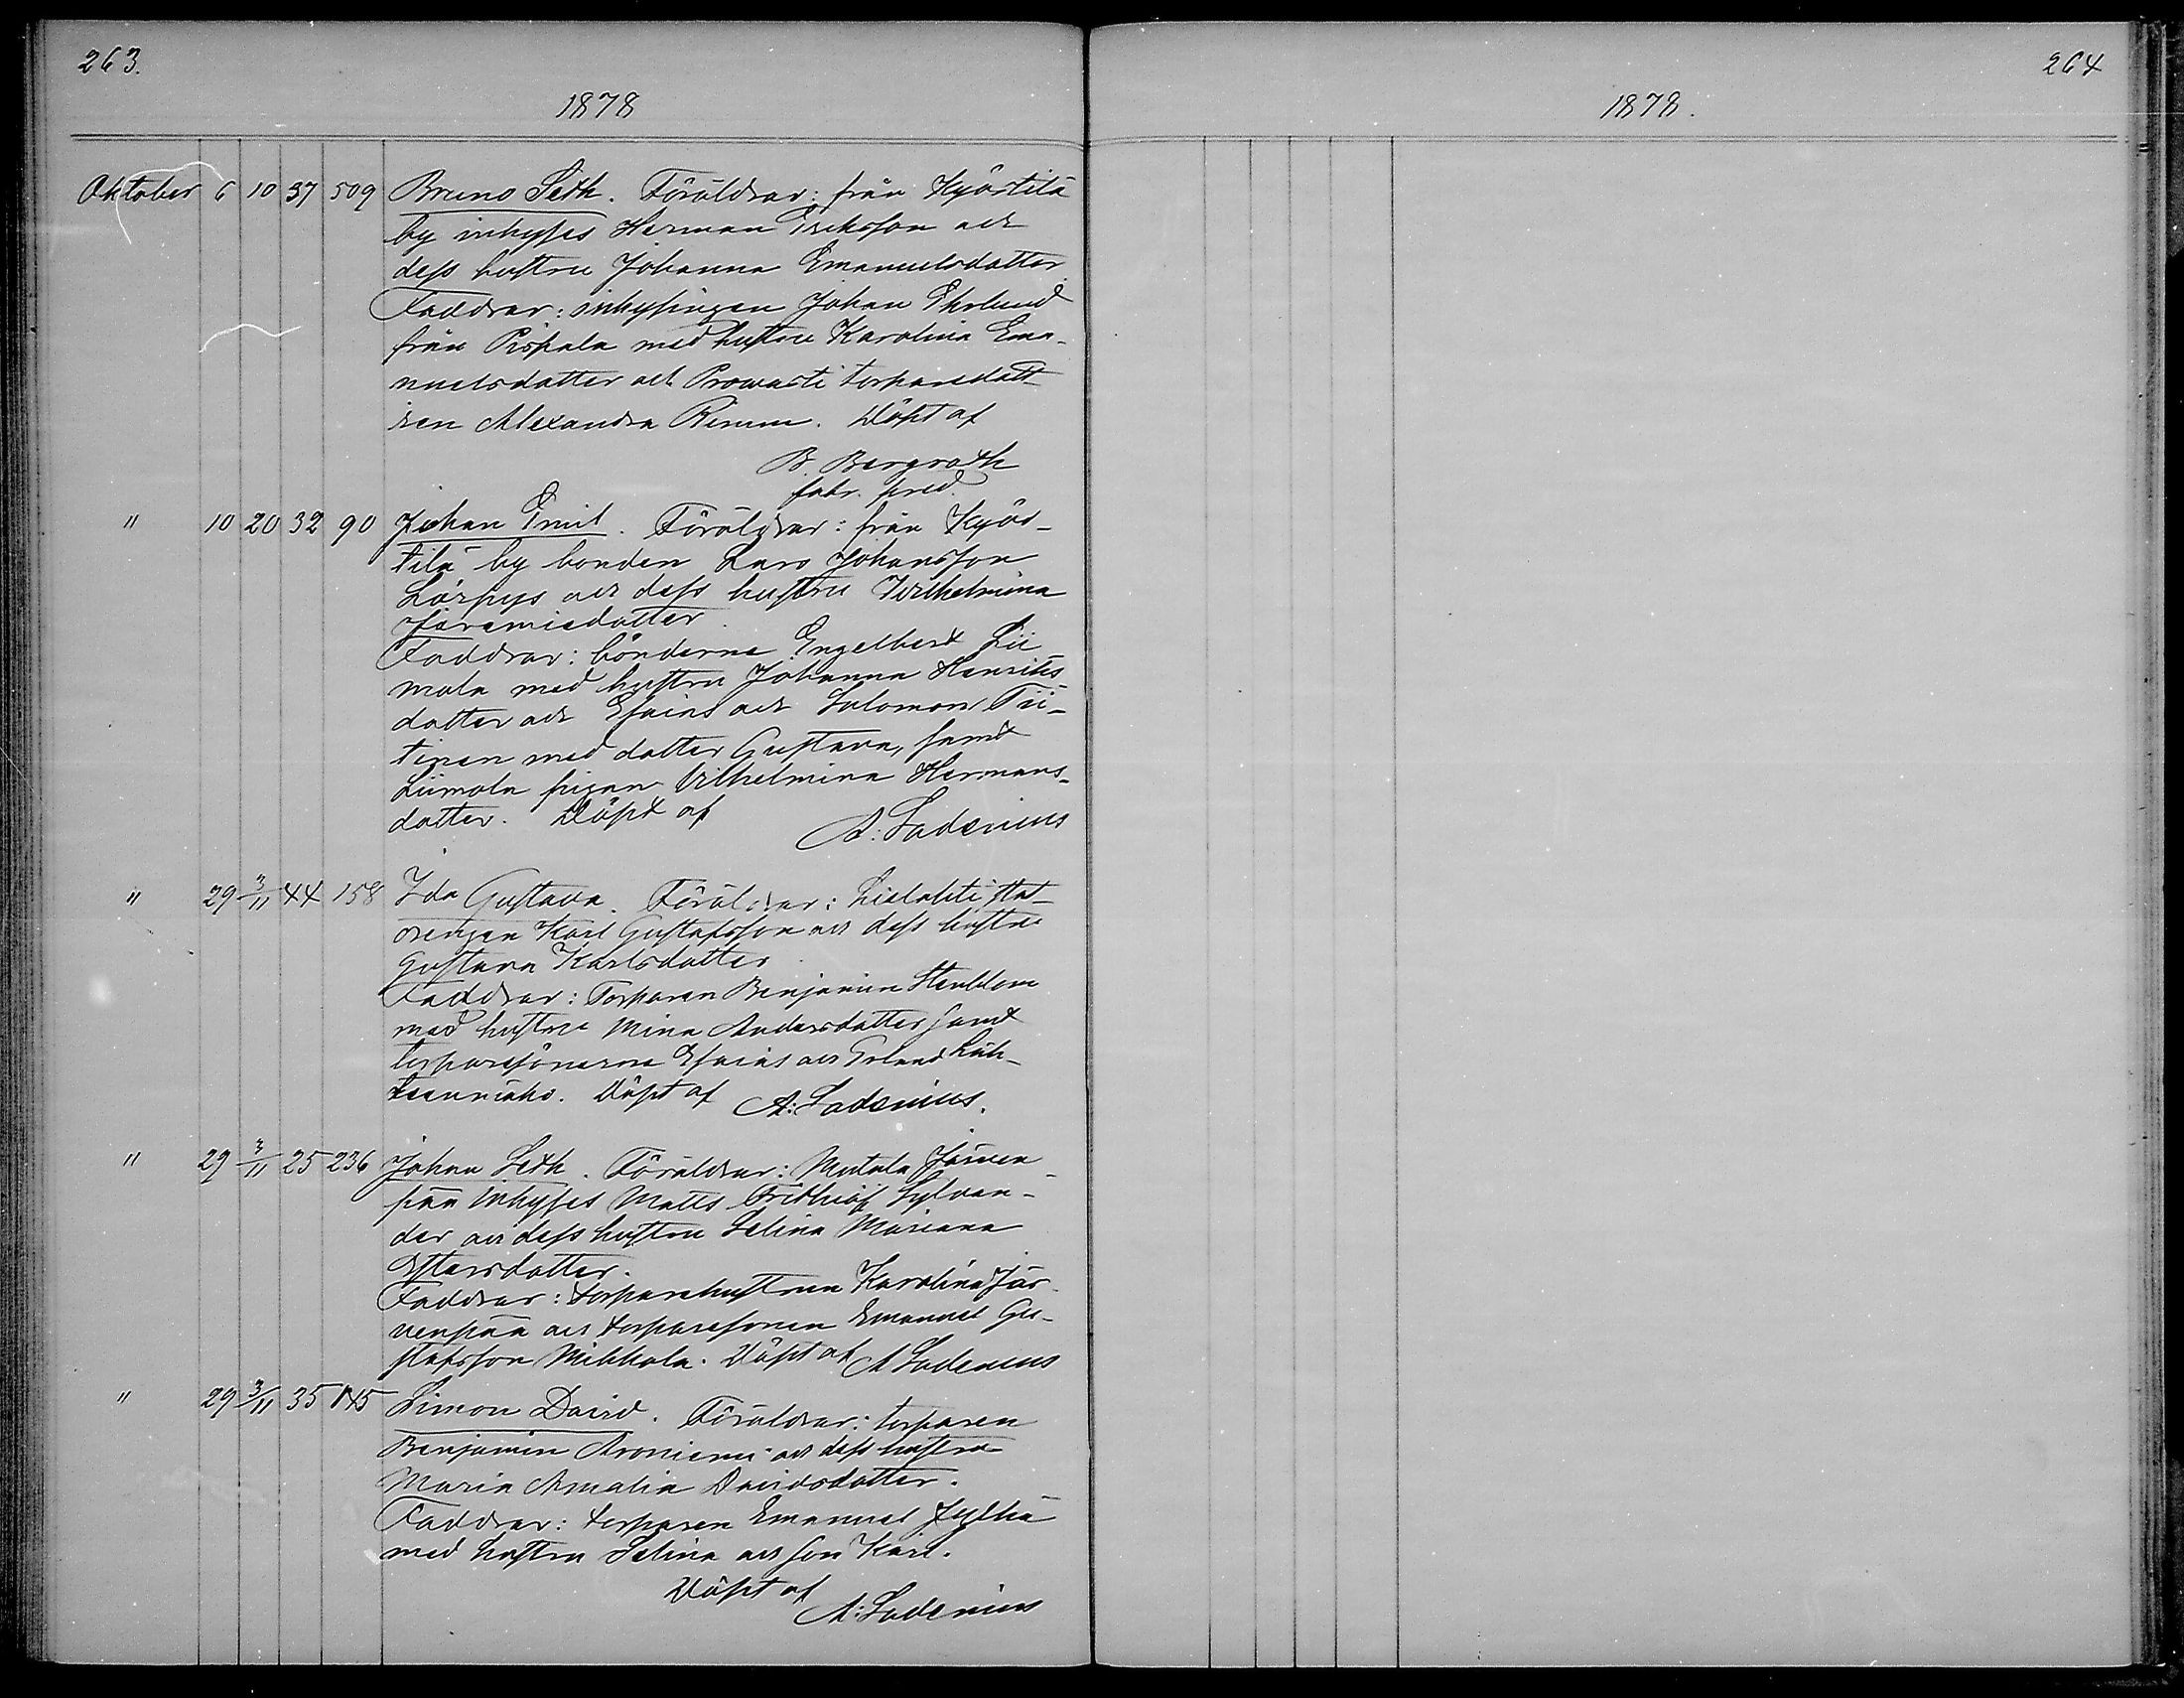 263.
1878
Oktober 6 10 37 509 Bruno Seth. Föräldrar: från Kyöstilä
by inhyses Herman Eriksson och
dess hustru Johanna Emanuelsdotter
Faddrar: inhysingen Johan Ekelund
från Pispala med hustru Karolina Ema-
nuelsdotter och Prowasti torparedott-
ren Alexandra Rimm. Döpt af
B. Bergroth
fabr. pred.
" 10 20 32 90 Johan Emil. Föräldrar: från Kyös-
tilä by bonden Lars Johansson
Lörpys och dess hustru Wilhelmina
Jeremiedotter.
Faddrar: bönderne Engelbert Lii
mola med hustru Johanna Henriks
dotter och Efraim och Salomon Tii-
tinen med dotter Gustava, samt
Liimola pigan Vilhelmina Hermans-
dotter. Döpt af A: Ladenius
" 29 3/11 44 158 Ida Gustava. Föräldrar: Lielahti stat-
drengen Karl Gustafsson och dess hustru
Gustava Karlsdotter.
Faddrar: Torparen Benjamin Stenblom
med hustru Mina Andersdotter samt
torparesönerne Efraim och Erland Läh-
teenmäki. Döpt af A: Ladenius.
" 29 3/11 25 236 Johan Seth. Föräldrar: Mutala Järven
pää inhyses Matts Fridhiof Sylvan-
der och dess hustru Selina Mariana
Estersdotter.
Faddrar: torparehustrun Karolina Jär-
venpää och torparesonen Emanuel Gu-
stafsson Mikkola. Döpt af A Ladenius
" 29 3/11 35 145 Simon David. Föräldrar: torparen
Benjamin Aroniemi och dess hustru
Maria Amalia Davidsdotter.
Faddrar: torparen Emanuel Jylhä
med hustru Selina och son Karl.
Döpt af
A: Ladenius
264
1878.